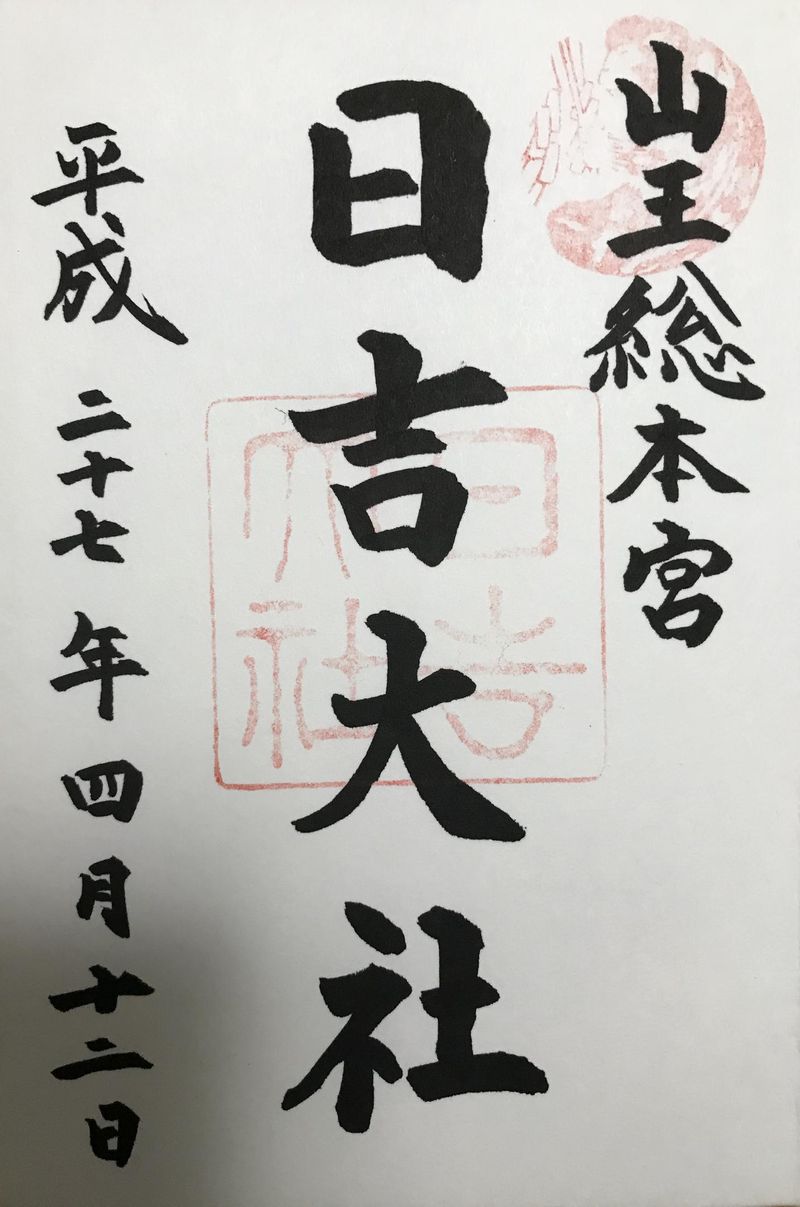 山王総本宮
日吉大社
日吉大社
平成二十七年四月十二日